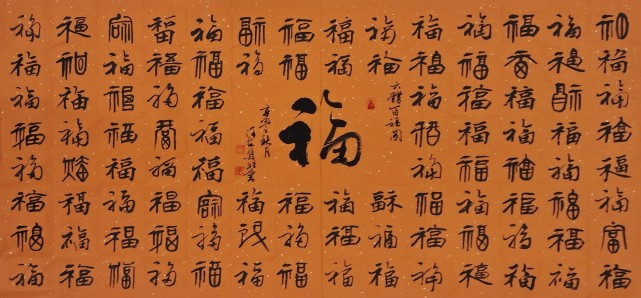 福福福福福福福福福福福福福福
福福福福福福福福福福福福福福
福福福福福福福福福福
福福福福福福福福福福
福福福福福福福福福福
福福福福福福福福福福福福福福
福福福福福福福福福福福福福福
福福福福福福福福福福福福福福
六體百福圖
福